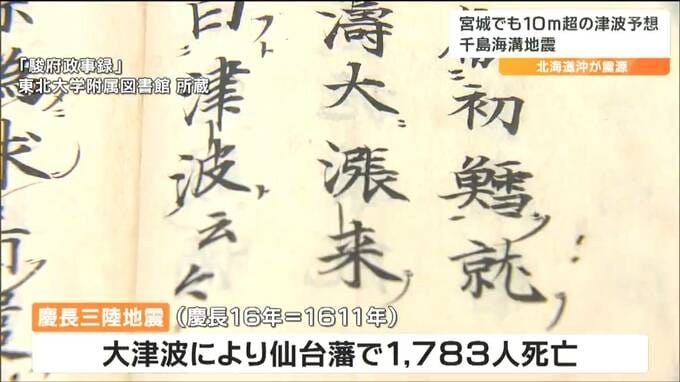 宮城でも10m超の津波予想
千島海溝地震
北海道沖が震源
「駿府政事録」
東北大学附属図書館 所蔵
初鱈就
濤大漲来
曰津波云々
慶長三陸地震（慶長16年＝1611年）
大津波により仙台藩で1,783人死亡